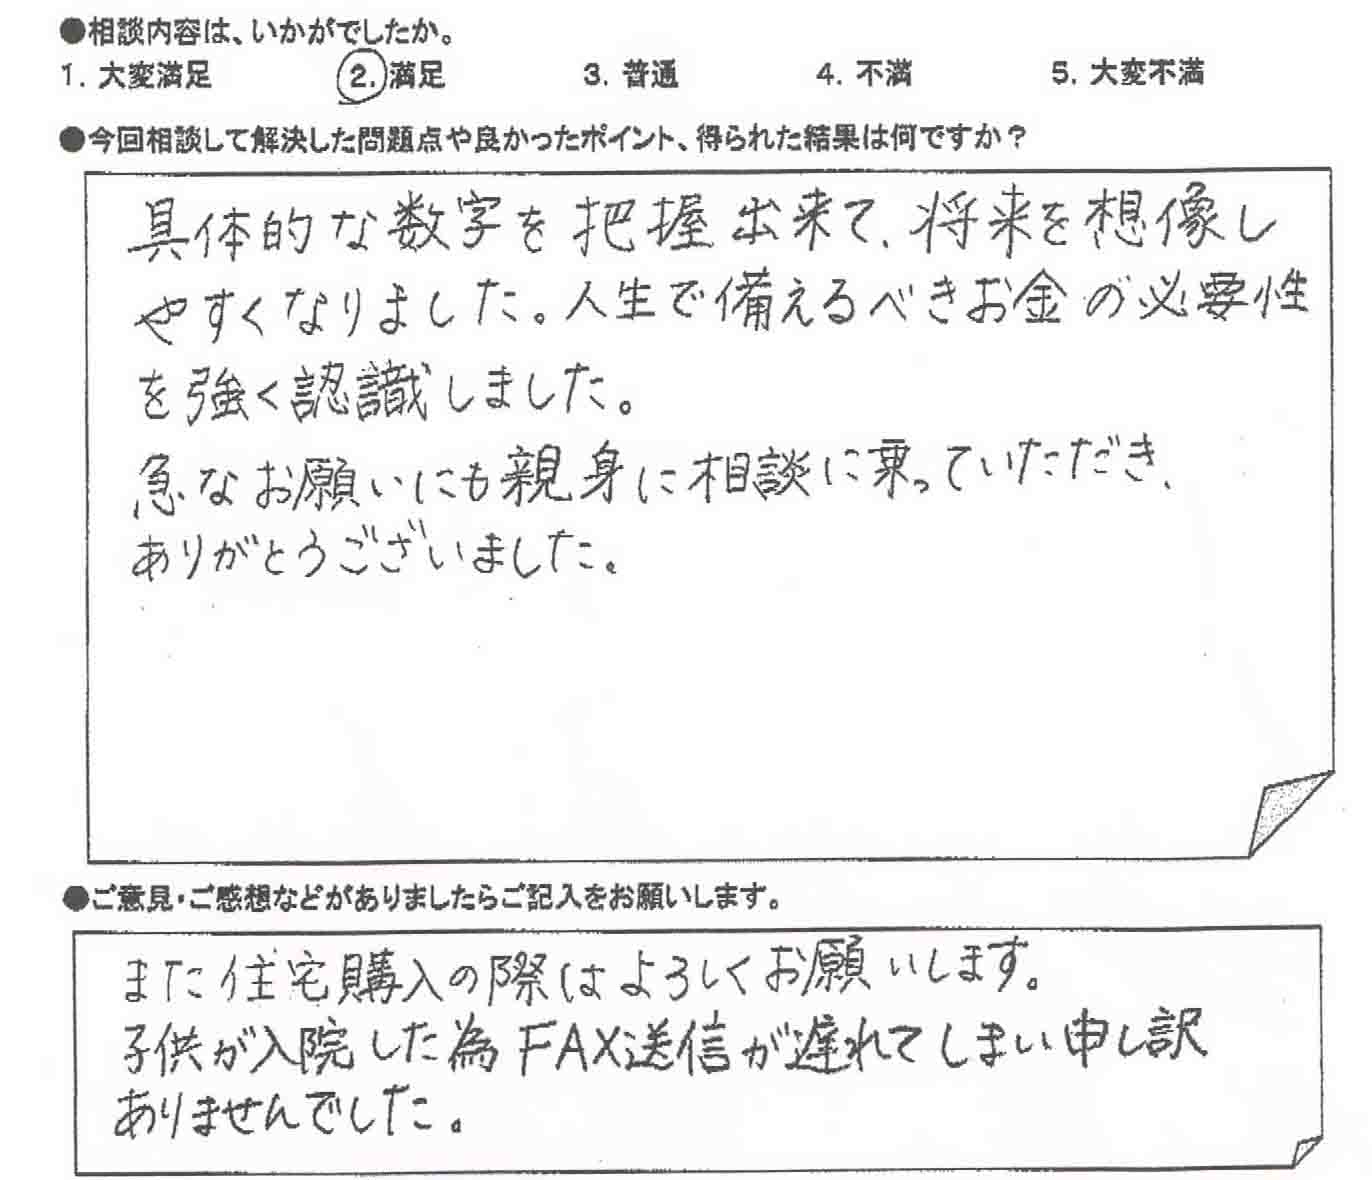 ●相談内容は、いかがでしたか。
1. 大変満足 2. 満足 3. 普通 4. 不満 5. 大変不満
●今回相談して解決した問題点や良かったポイント、得られた結果は何ですか？
具体的な数字を把握出来て、将来を想像し
やすくなりました。人生で備えるべきお金の必要性
を強く認識しました。
急なお願いにも親身に相談に乗っていただき、
ありがとうございました。
●ご意見・ご感想などがありましたらご記入をお願いします。
また住宅購入の際はよろしくお願いします。
子供が入院した為FAX送信が遅れてしまい申し訳
ありませんでした。